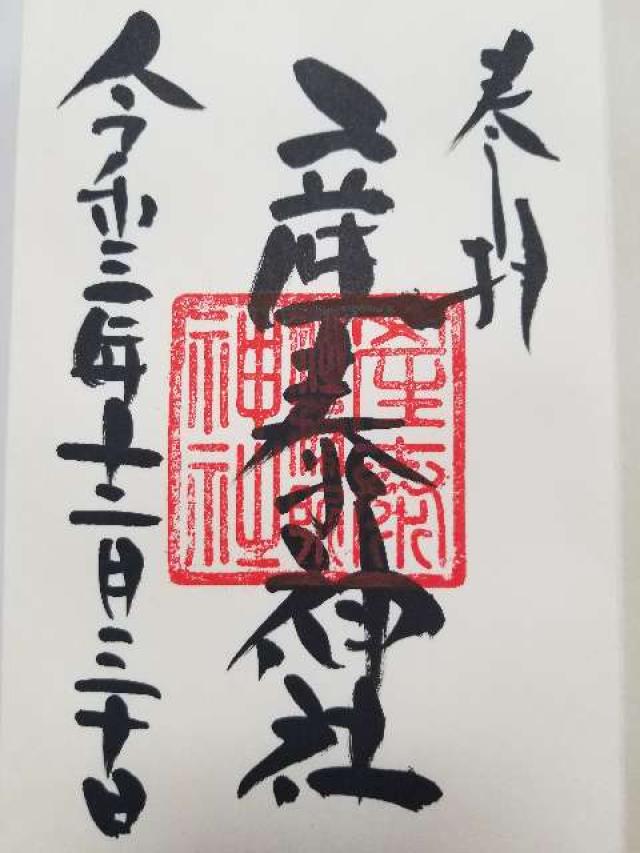 奉拝
産泰神社
令和三年十二月三十日
産泰
神社